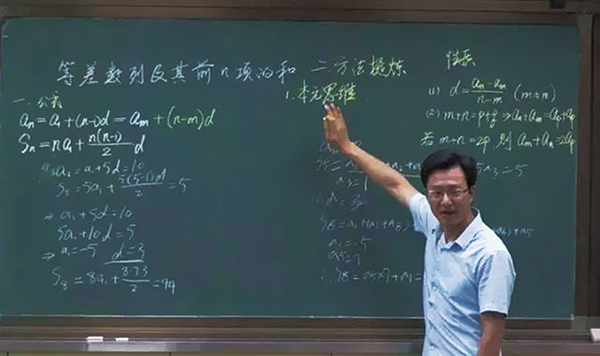 等差数列及其前n项的和
一.公式
aₙ=a₁+(n-1)d=aₘ+(n-m)d
Sₙ=na₁+n(n-1)/2 d
a₆=a₁+5d=10
S₅=5a₁+5(5-1)d/2=5
⇒a₁+5d=10
5a₁+10d=5
⇒a₁=-5 d=3
S₈=8a₁+8·7·3/2=44
二.方法提炼
1.本元思维
a₃=1
∴d=3
a₁=-5
性质
(1) d=aₙ-aₘ/n-m (m≠n)
(2) m+n=p+q⇒aₘ+aₙ=aₚ+a_q
若m+n=2p 则aₘ+aₙ=2aₚ